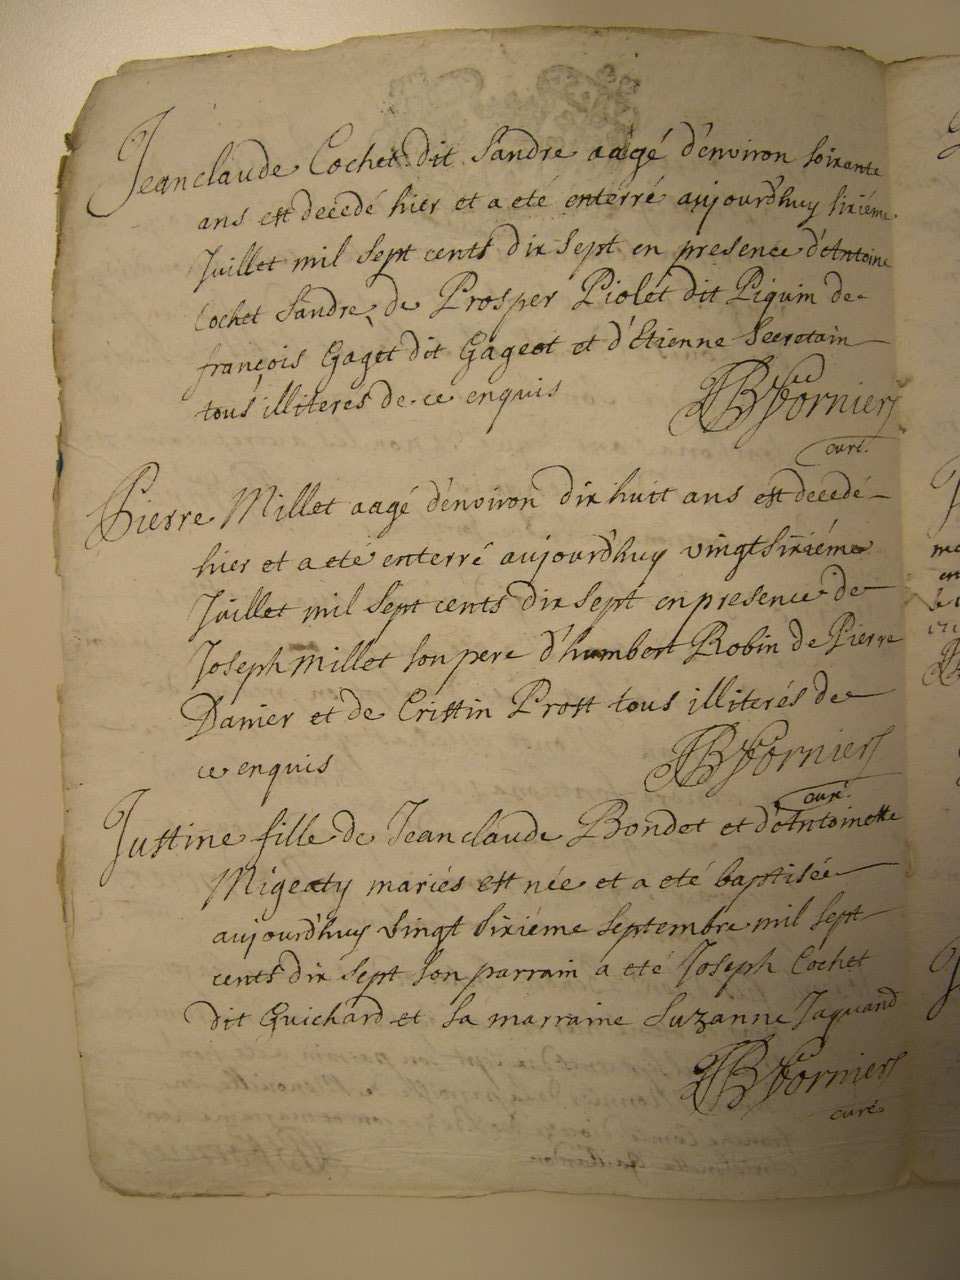 Jeanclaude Cochet dit Sandre aagé d'environ soixante
ans est decedé hier et a eté enterré aujourd'huy sixiéme
Juillet mil sept cents dix sept en presence d'Antoine
Cochet Sandre, de Prosper Piolet dit Piquin de
françois Gaget dit Gageot et d'Etienne Secretain
tous illiteres de ce enquis
JB Fornier
curé.
Pierre Millet aagé d'environ dix huit ans est decedé
hier et a eté enterré aujourd'huy vingt sixiéme
Juillet mil sept cents dix sept en presence de
Joseph Millet son pere d'humbert Robin de Pierre
Danier et de Cristin Prost tous illiterés de
ce enquis
JB Fornier
curé.
Justine fille de Jeanclaude Bondet et d'Antoinette
Migeaty mariés est née et a eté baptisée
aujourd'huy vingt sixiéme septembre mil sept
cents dix sept son parrain a eté Joseph Cochet
dit Guichard et sa marraine Suzanne Jaquand
JB Fornier
curé